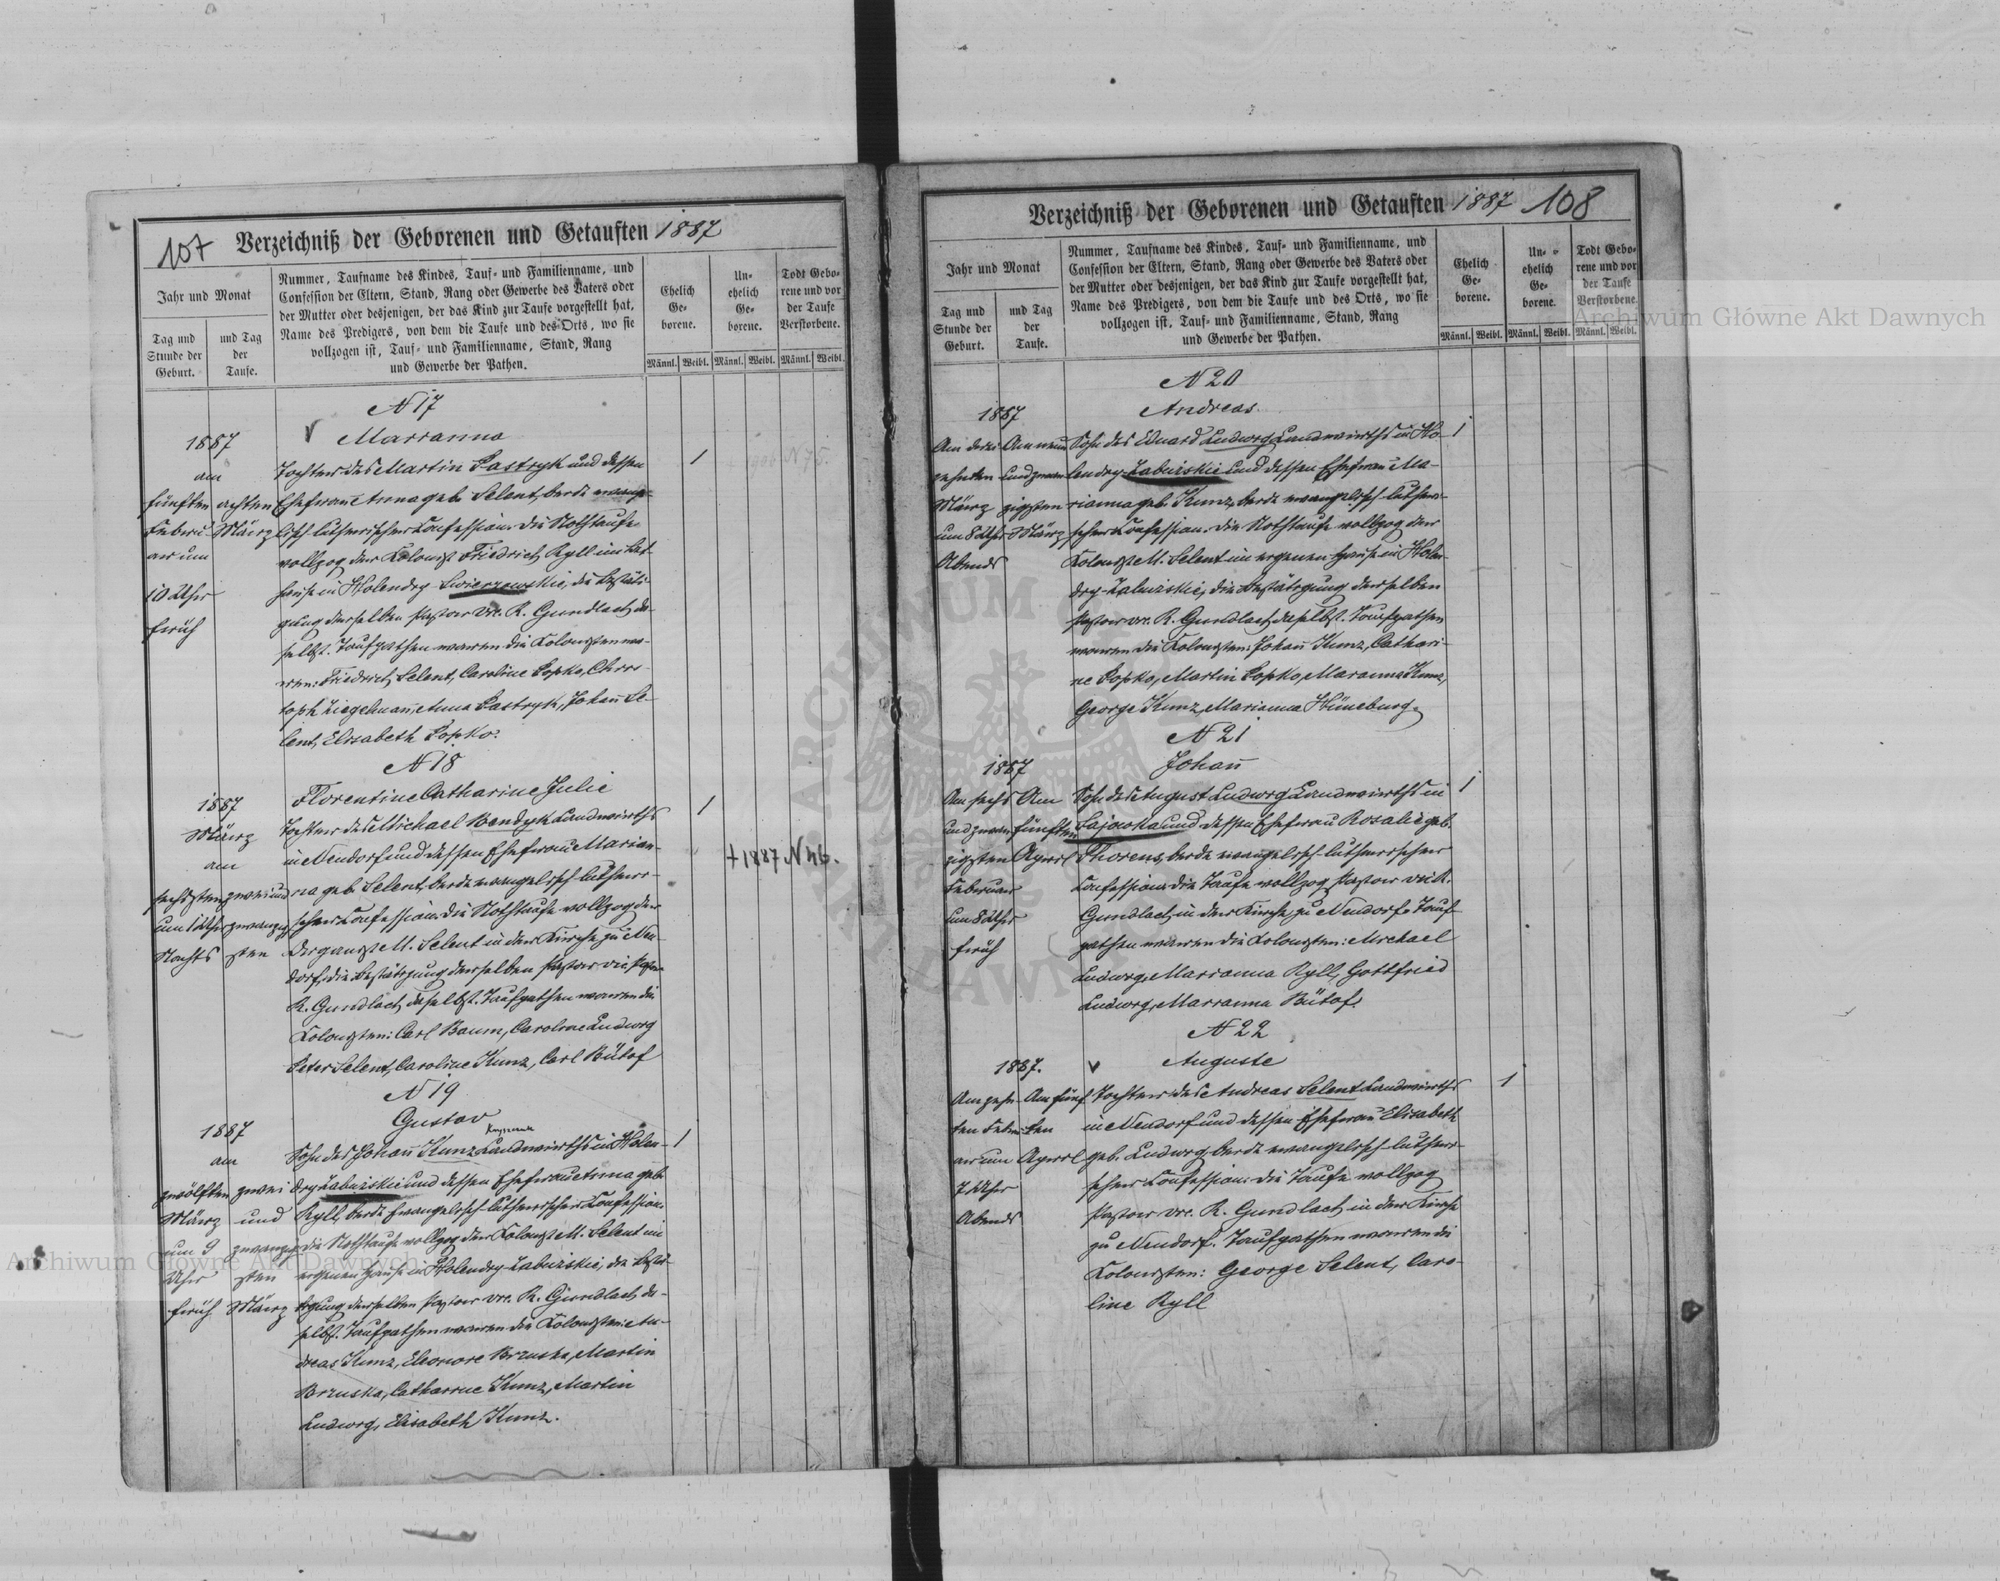 107 Verzeichniß der Geborenen und Getauften 1887
Jahr und Monat
Tag und Stunde der Geburt.
und Tag der Taufe.
Nummer, Taufname des Kindes, Tauf- und Familienname, und
Confession der Eltern, Stand, Rang oder Gewerbe des Vaters oder
der Mutter oder desjenigen, der das Kind zur Taufe vorgestellt hat,
Name des Predigers, von dem die Taufe und des Orts, wo sie
vollzogen ist, Tauf- und Familienname, Stand, Rang
und Gewerbe der Pathen.
Ehelich Ge- borene.
Un- ehelich Ge- borene.
Todt Gebo- rene und vor der Taufe Verstorbene.
Männl. Weibl. Männl. Weibl. Männl. Weibl.
N 17
1887
am
fünften
Februar um
10 Uhr
früh
achten
März
Marianna
Tochter des Martin Pastryk und dessen 1
Ehefrau Anna geb. Selent, beide evange-
lisch-lutherischer Confession. Die Nothtaufe
vollzog der Kolonist Friedrich Ryll im Bet-
hause in Holendry Swierzowskie, die Bestäti-
gung derselben Pastor vic. R. Gundlach da-
selbst. Taufpathen waren die Kolonisten wa-
ren: Friedrich Selent, Caroline Popko, Chris-
toph Ziegelmann, Anna Pastryk, Johann Se-
lent, Elisabeth Popko.
N 18
1887
März
am
sechsten
um 1 Uhr
Nachts
zweiund
zwanzig
sten
Florentine Catharine Julie
Tochter des Michael Bondyk Landwirths 1
in Neudorf und dessen Ehefrau Marian-
na geb. Selent, beide evangelisch-lutheri-
scher Confession. Die Nothtaufe vollzog der
Organist M. Selent in der Kirche zu Neu-
dorf, die Bestätigung derselben Pastor vic.
R. Gundlach daselbst. Taufpathen waren die
Kolonisten: Carl Baum, Caroline Ludwig
Peter Selent, Caroline Kunz, Carl Bütof
+ 1887 N 46.
N 19
1887
am
zwölften
März
um 9
Uhr
früh
zwei
und
zwanzig
sten
März
Gustav
Sohn des Johann Kunz Landwirths in Holen- 1
dry Zabuzskie und dessen Ehefrau Anna geb.
Ryll, beide evangelisch-lutherischer Confession.
die Nothtaufe vollzog der Kolonist M. Selent im
eigenen Hause in Holendry-Zabuzskie, die Bestä-
tigung derselben Pastor vic. R. Gundlach da-
selbst. Taufpathen waren die Kolonisten: An-
dreas Kunz, Eleonore Brzuska, Martin
Brzuska, Catharine Kunz, Martin
Ludwig, Elisabeth Kunz.
Verzeichniß der Geborenen und Getauften 1887 108
Jahr und Monat
Tag und Stunde der Geburt.
und Tag der Taufe.
Nummer, Taufname des Kindes, Tauf- und Familienname, und
Confession der Eltern, Stand, Rang oder Gewerbe des Vaters oder
der Mutter oder desjenigen, der das Kind zur Taufe vorgestellt hat,
Name des Predigers, von dem die Taufe und des Orts, wo sie
vollzogen ist, Tauf- und Familienname, Stand, Rang
und Gewerbe der Pathen.
Ehelich Ge- borene.
Un- ehelich Ge- borene.
Todt Gebo- rene und vor der Taufe Verstorbene.
Männl. Weibl. Männl. Weibl. Männl. Weibl.
N 20
1887
Am drei
zehnten
März
um 8 Uhr
Abends
Am neun
undzwan
zigsten
März
Andreas
Sohn des Eduard Ludwig Landwirths in Ho- 1
lendry-Zabuzskie und dessen Ehefrau Ma-
rianna geb. Kunz, beide evangelisch-lutheri-
scher Confession. Die Nothtaufe vollzog der
Kolonist M. Selent im eigenen Hause in Holen-
dry-Zabuzskie, die Bestätigung derselben
Pastor vic. R. Gundlach daselbst. Taufpathen
waren die Kolonisten: Johann Kunz, Cathari-
ne Popko, Martin Popko, Marianna Kunz,
George Kunz, Marianna Hüneburg.
N 21
1887
Am sechs
undzwan
zigsten
Februar
um 8 Uhr
früh
Am
fünften
April
Johann
Sohn des August Ludwig Landwirths in 1
Sajowka und dessen Ehefrau Rosalie geb.
Thorens, beide evangelisch-lutherischer
Confession. Die Taufe vollzog Pastor vic. R.
Gundlach in der Kirche zu Neudorf. Tauf-
pathen waren die Kolonisten: Michael
Ludwig, Marianna Ryll, Gottfried
Ludwig, Marianna Bütof.
N 22
1887.
Am zehn
ten Febru
ar um
7 Uhr
Abends
Am fünf
ten
April
Auguste
Tochter des Andreas Selent Landwirths 1
in Neudorf und dessen Ehefrau Elisabeth
geb. Ludwig, beide evangelisch-lutheri-
scher Confession. Die Taufe vollzog
Pastor vic. R. Gundlach in der Kirche
zu Neudorf. Taufpathen waren die
Kolonisten: George Selent, Caro-
line Ryll
Archiwum Główne Akt Dawnych
Archiwum Główne Akt Dawnych